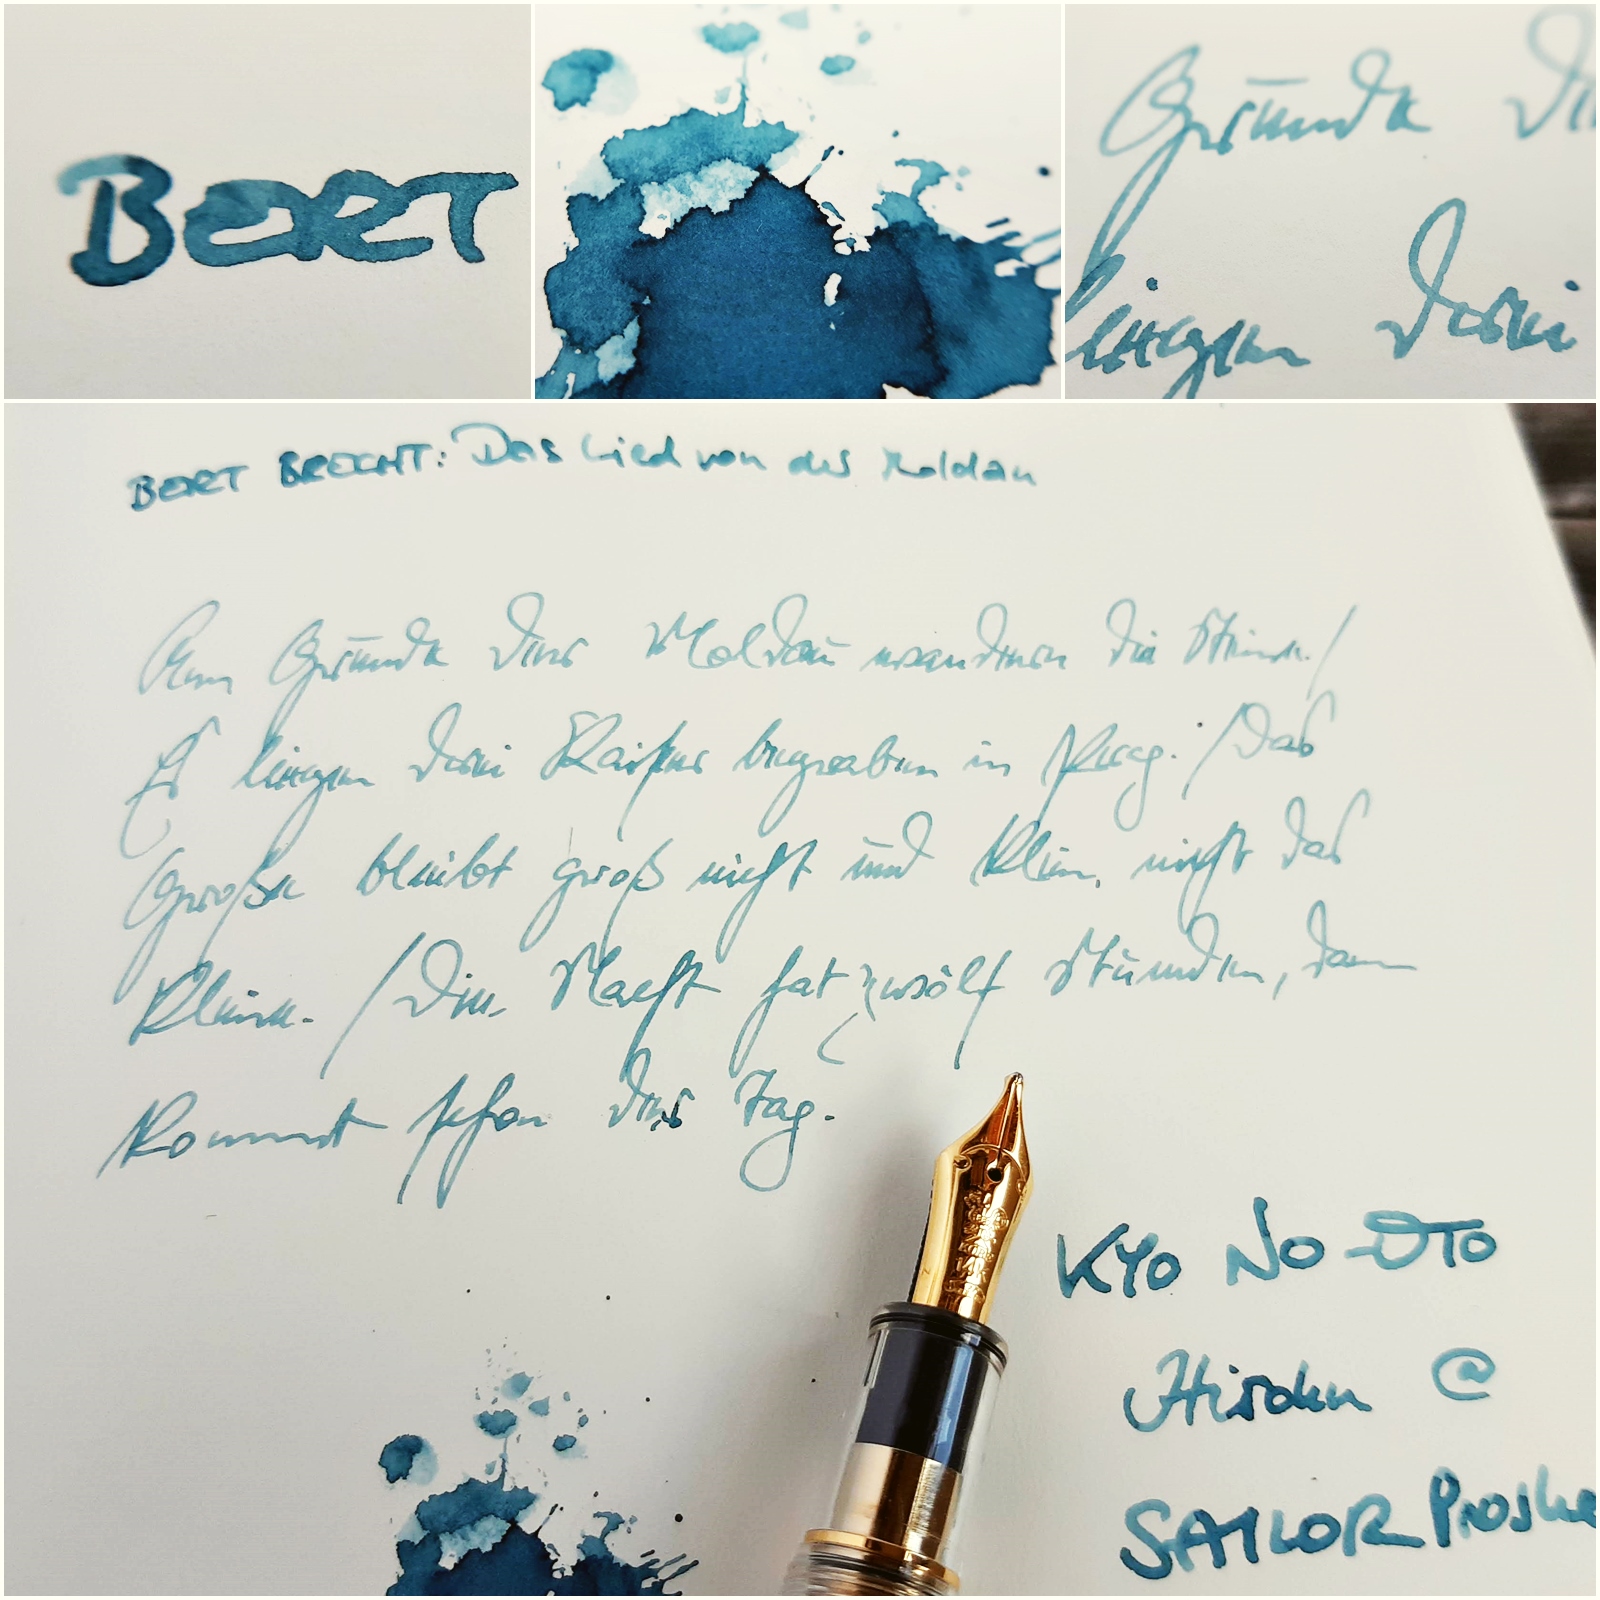 BERT
Grunde di
liegen drei
BERT BRECHT: Das Lied von der Moldau
Am Grunde der Moldau wandern die Steine. /
Es liegen drei Kaiser begraben in Prag. / Das
Große bleibt groß nicht und klein nicht das
Kleine. / Die Nacht hat zwölf Stunden, dann
kommt schon der Tag.
14K
KYO NO-OTO
Hisoku @
SAILOR Proske